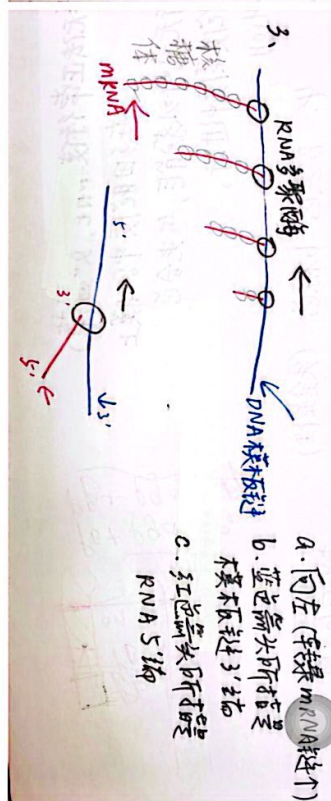 3、
核糖体
mRNA
RNA多聚酶
DNA模板链
5'
3'
3'
5'
a.向左(车录mRNA链个)
b.蓝色箭头所指是
模板链3'端
c.红色箭头所指是
RNA 5'端